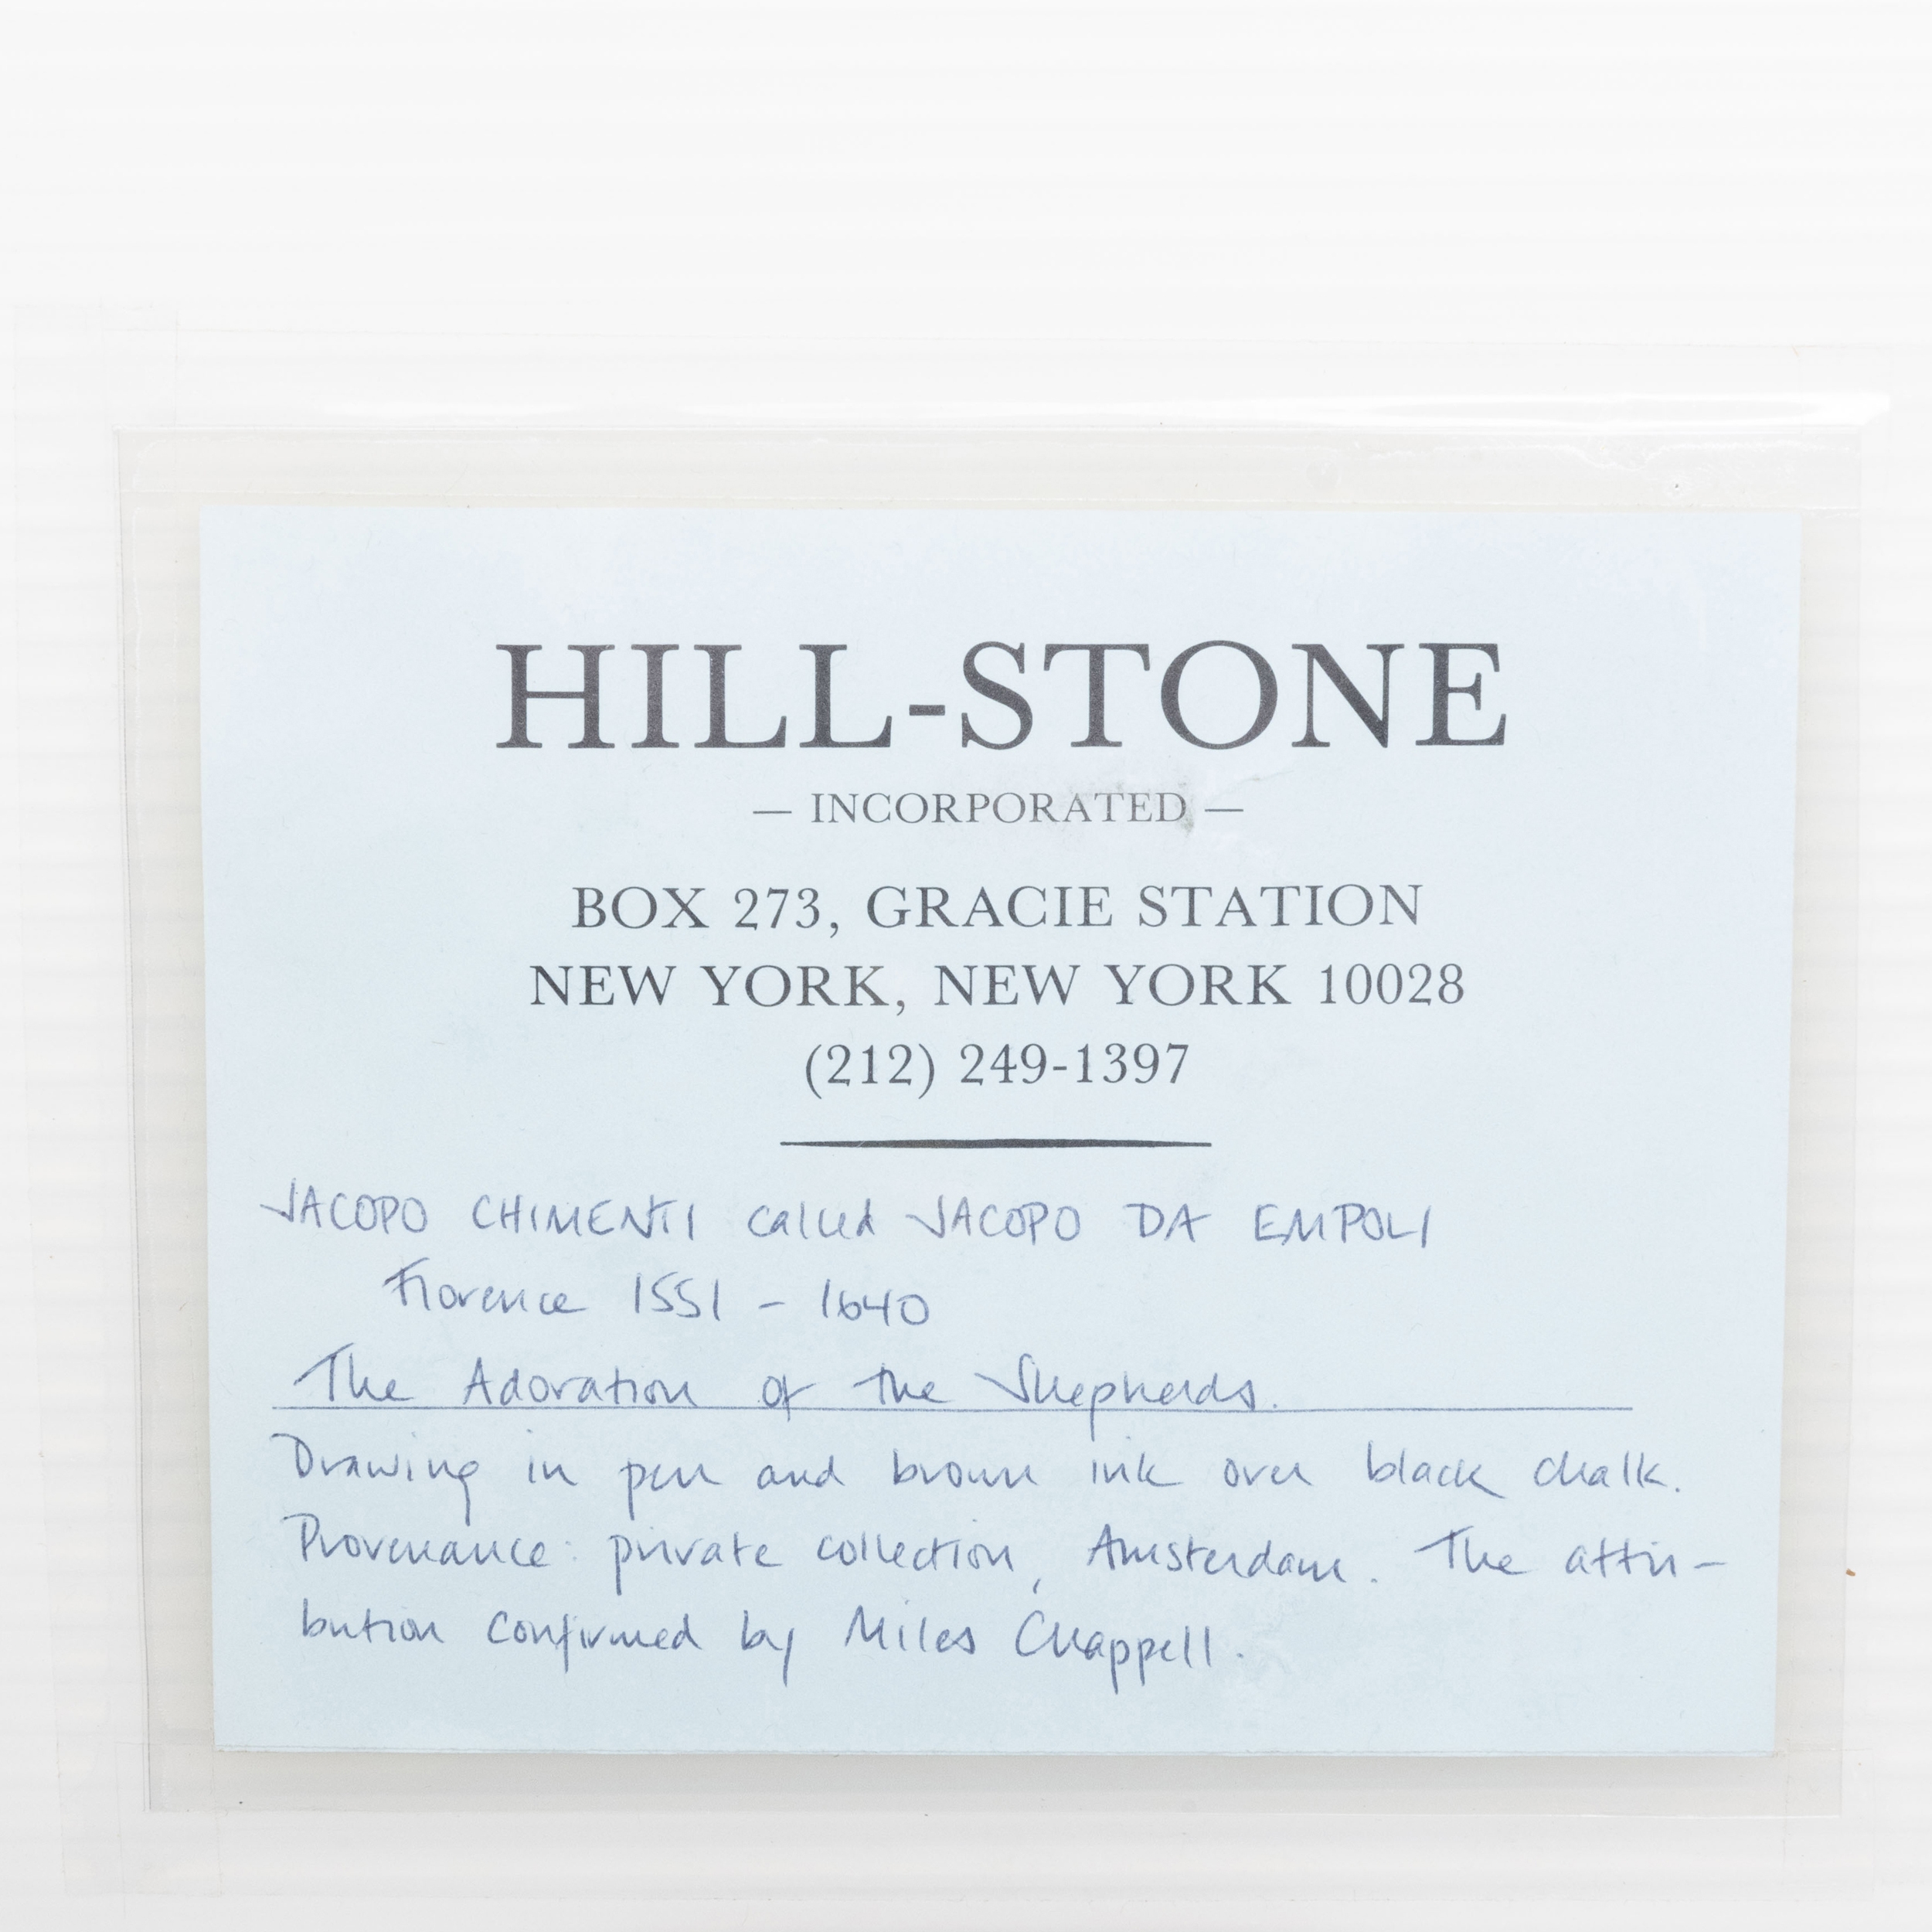 HILL-STONE
— INCORPORATED —
BOX 273, GRACIE STATION
NEW YORK, NEW YORK 10028
(212) 249-1397
JACOPO CHIMENTI called JACOPO DA EMPOLI
Florence 1551 - 1640
The Adoration of the Shepherds.
Drawing in pen and brown ink over black chalk.
Provenance: private collection, Amsterdam. The attri-
bution confirmed by Miles Chappell.